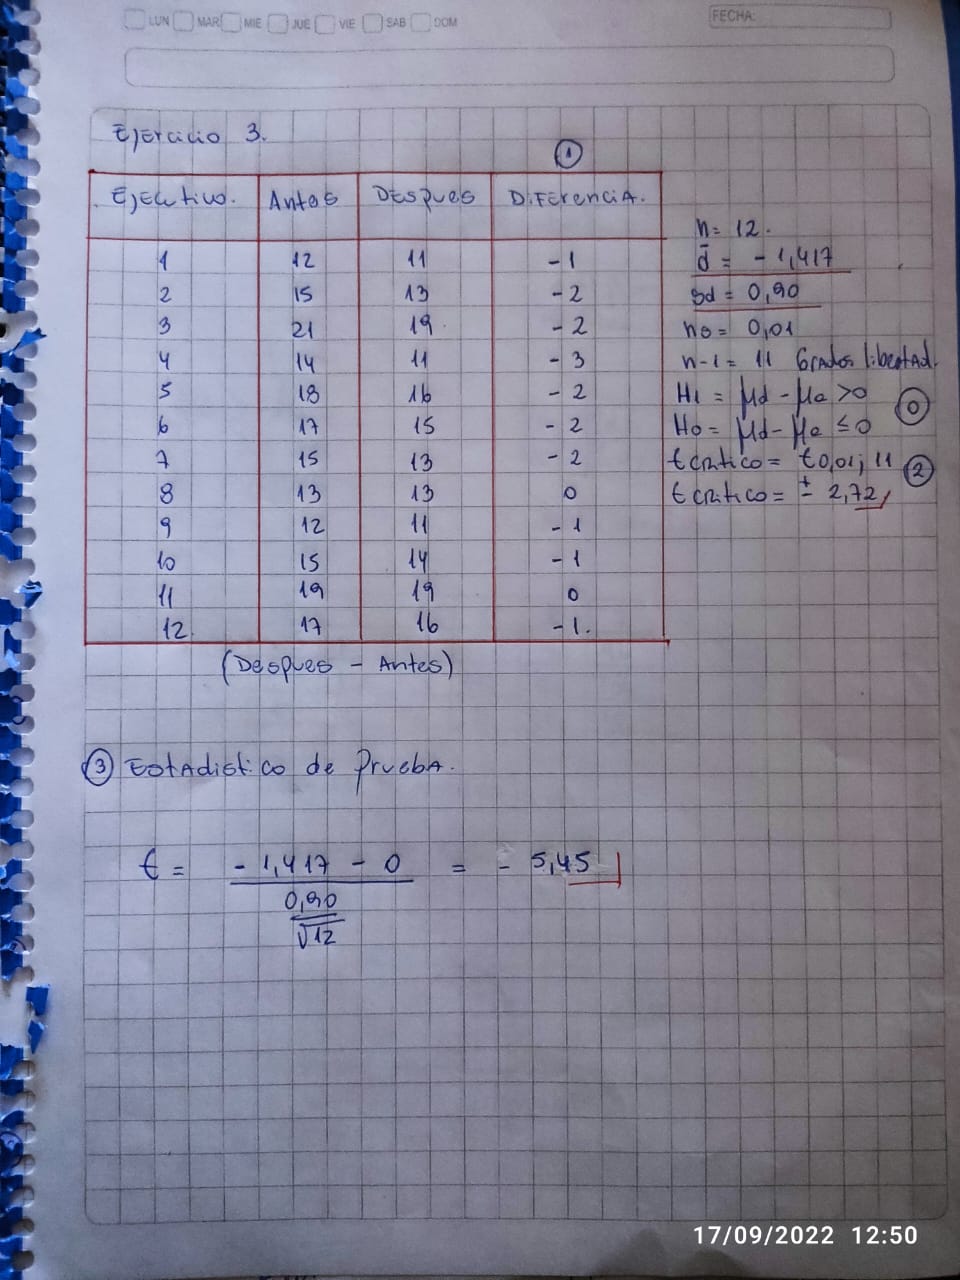 LUN MAR MIE JUE VIE SAB DOM
FECHA:
Ejercicio 3.
1
Ejecutivo. Antes Despues Diferencia.
1 12 11 -1
2 15 13 -2
3 21 19 -2
4 14 11 -3
5 18 16 -2
6 17 15 -2
7 15 13 -2
8 13 13 0
9 12 11 -1
10 15 14 -1
11 19 19 0
12. 17 16 -1.
(Despues - Antes)
n= 12.
d̄ = -1,417
sd = 0,90
no = 0,01
n-1 = 11 Grados libertad.
H1 = μd - μa >0
0
Ho = μd - μa ≤0
t critico = t0,01; 11
2
t critico = ± 2,72
3 Estadistico de prueba.
t = -1,417 - 0 = - 5,45
0,90
√12
17/09/2022 12:50